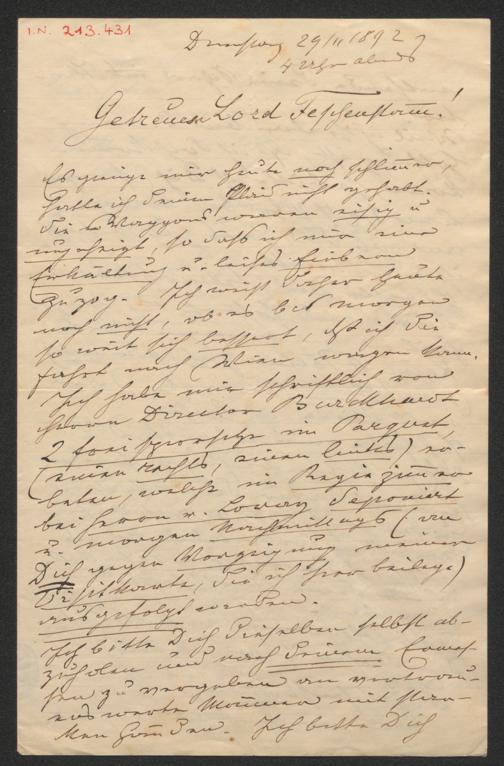 I.N. 213.431
Dienstag 29/11 1892
4 Uhr abends
Getreuer Lord !
Es gienge mir heute noch schlimmer,
hätte ich Deinen Plaid nicht gehabt.
Die Waggons waren eisig u
ungeheizt, so daß ich mir eine
Erkältung u. leises Fiebern
zuzog. Ich weiß daher heute
noch nicht, ob es bis morgen
so weit sich bessert, daß ich die
Fahrt nach Wien wagen kann.
Ich habe mir schriftlich von
Herrn Director Burckhardt
2 freie Sperrsitze im Parquet,
(einen rechts, einen links) er-
beten, welche im Regiezimmer
bei Herrn v. deponiert
u. morgen Nachmittags (an
Dich gegen Vorzeigung meiner
Visitkarte, die ich hier beilege)
ausgefolgt werden.
Ich bitte Dich dieselben selbst ab-
zuholen und nach Deinem Ermes-
sen zu vergeben an vertrau-
enswerte Männer mit star-
ken Händen. Ich bitte Dich